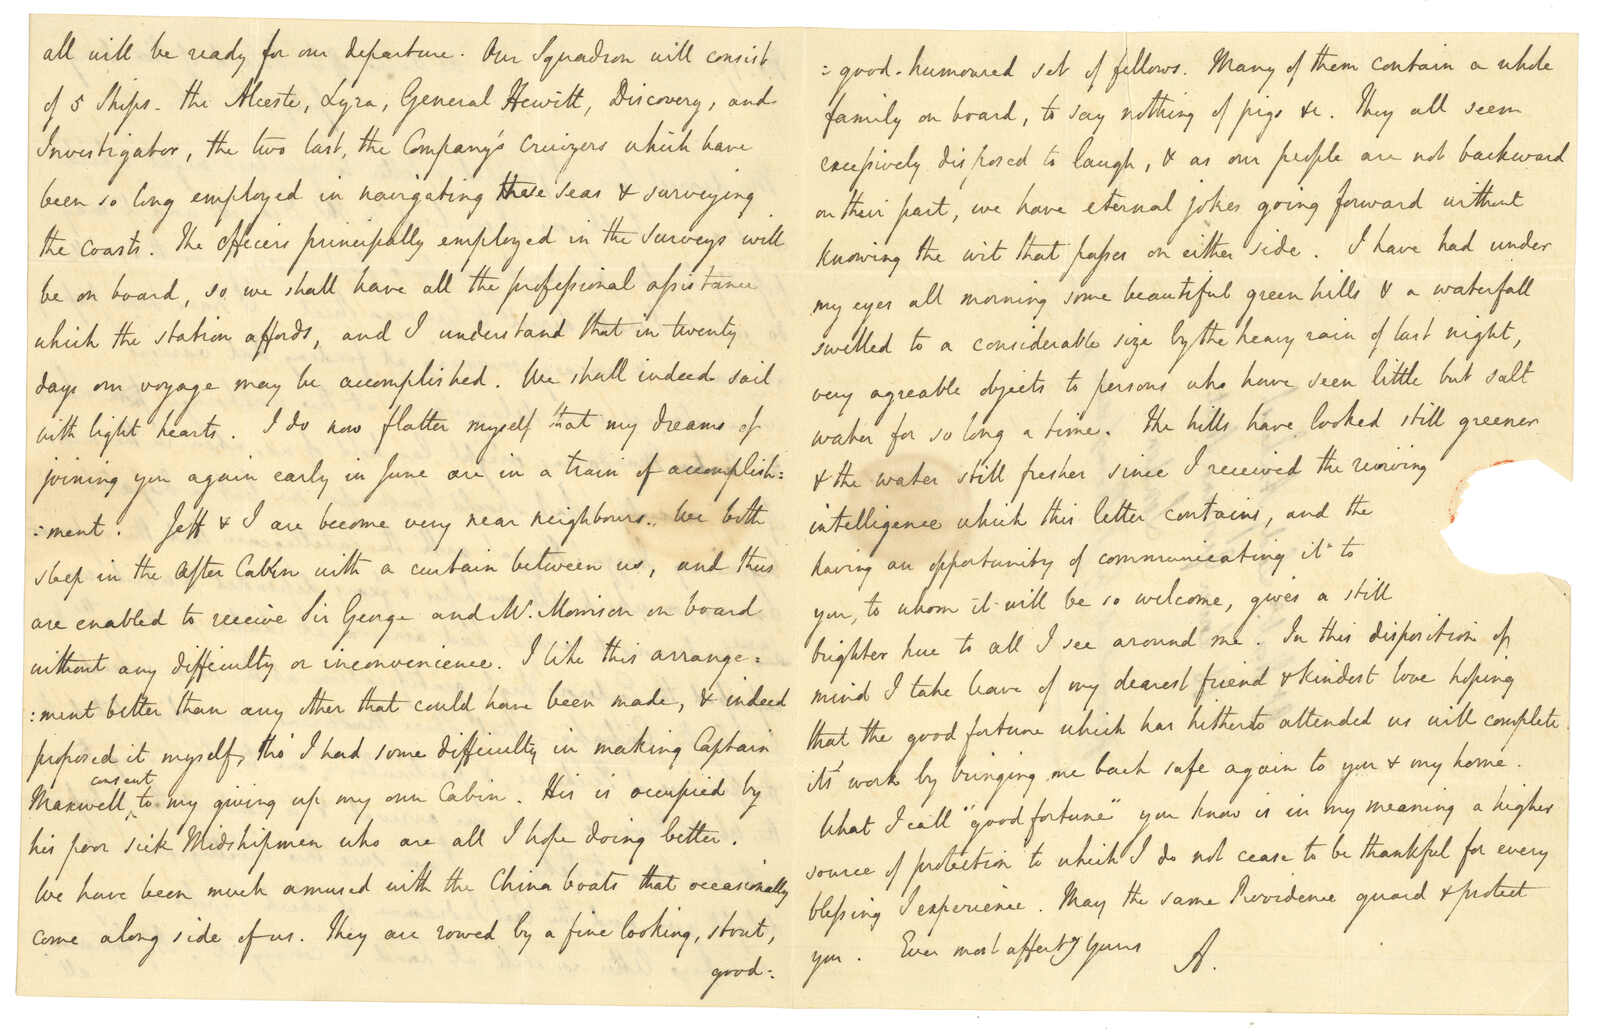 all will be ready for our departure. Our Squadron will consist
of 5 Ships. the Alceste, Lyra, General Hewitt, Discovery, and
Investigator, the two last, the Company's Cruizers which have
been so long employed in navigating these seas & surveying
the coasts. The officers principally employed in the surveys will
be on board, so we shall have all the professional assistance
which the station affords, and I understand that in twenty
days our voyage may be accomplished. We shall indeed sail
with light hearts. I do now flatter myself that my dreams of
joining you again early in June are in a train of accomplish:
:ment. Jeff & I are become very near neighbours. We both
sleep in the After Cabin with a curtain between us, and thus
are enabled to receive Sir George and Mr. Morrison on board
without any difficulty or inconvenience. I like this arrange:
:ment better than any other that could have been made, & indeed
proposed it myself, tho' I had some difficulty in making Captain
consent
Maxwell ^ to my giving up my own Cabin. His is occupied by
his poor sick Midshipmen who are all I hope doing better.
We have been much amused with the China boats that occasionally
come along side of us. They are rowed by a fine looking, stout,
good:
:good-humoured set of fellows. Many of them contain a whole
family on board, to say nothing of pigs &c. They all seem
excessively disposed to laugh, & as our people are not backward
on their part, we have eternal jokes going forward without
knowing the wit that passes on either side. I have had under
my eyes all morning some beautiful green hills & a waterfall
swelled to a considerable size by the heavy rain of last night,
very agreable objects to persons who have seen little but salt
water for so long a time. The hills have looked still greener
& the water still fresher since I received the reviving
intelligence which this letter contains, and the
having an opportunity of communicating it to
you, to whom it will be so welcome, gives a still
brighter hue to all I see around me. In this disposition of
mind I take leave of my dearest friend & kindest love hoping
that the good fortune which has hitherto attended us will complete
it's work by bringing me back safe again to you & my home.
What I call "good fortune" you know is in my meaning a higher
source of protection to which I do not cease to be thankful for every
blessing I experience. May the same Providence guard & protect
you. Ever most affectly Yours A.